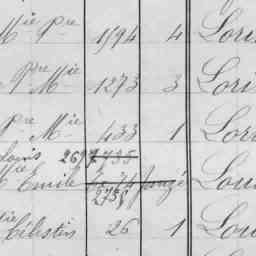 Mie Pre 1594 4 Lori
Pre Mie 1273 3 Lori
Pre M 433 1 Lor
Louis 2697
Emile 2758 Lou
Célestin 26 1 Lou